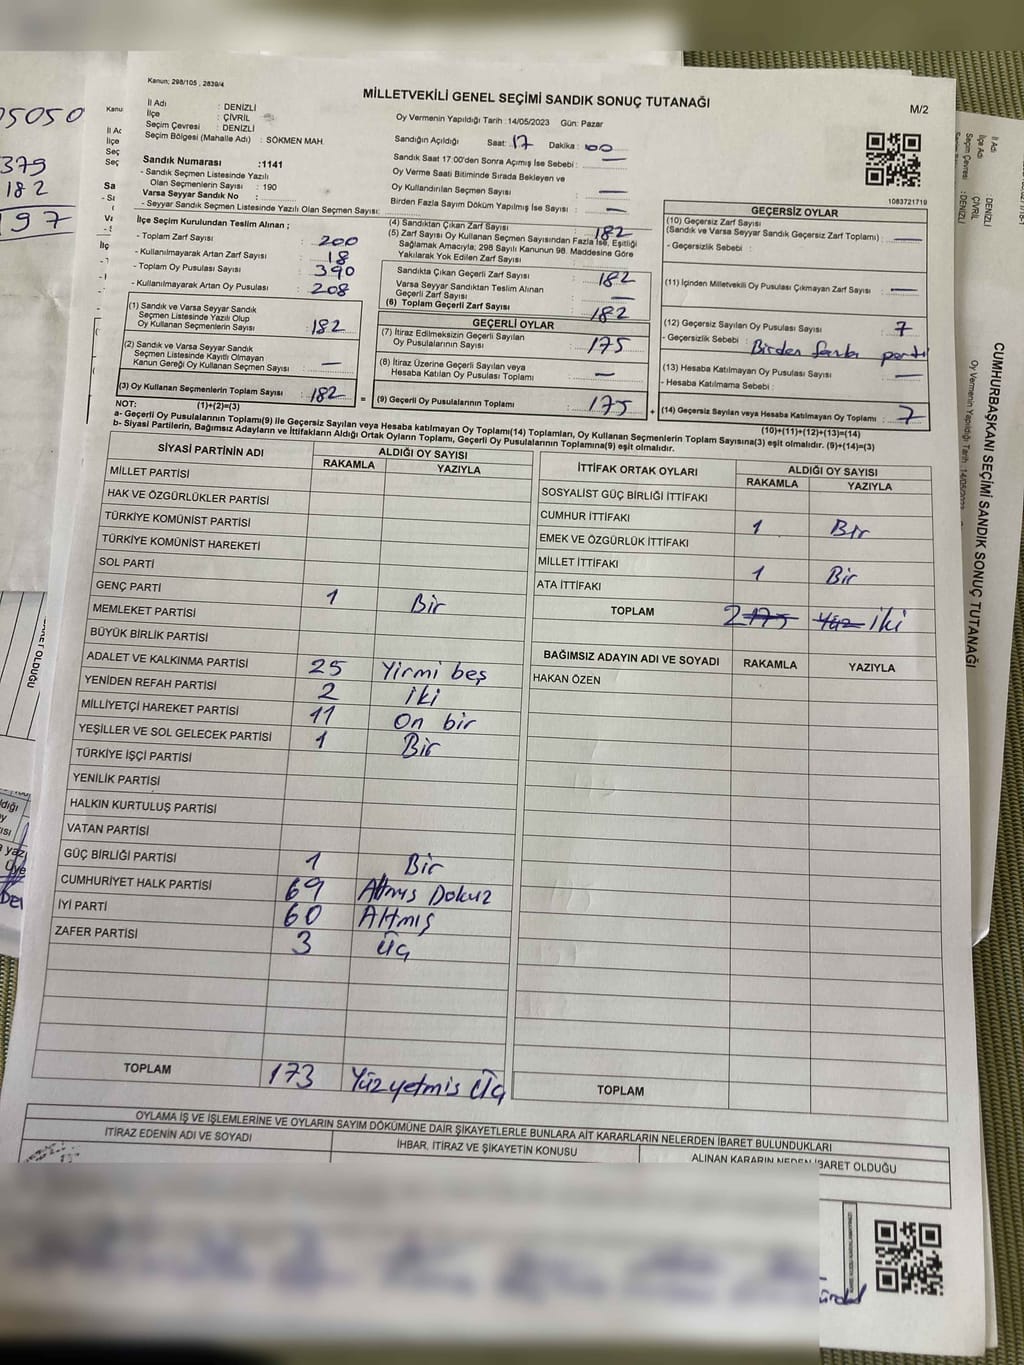 Kanun; 298/105 , 2839/4
MİLLETVEKİLİ GENEL SEÇİMİ SANDIK SONUÇ TUTANAĞI
M/2
Oy Vermenin Yapıldığı Tarih :14/05/2023 Gün: Pazar
İl Adı : DENİZLİ
İlçe : ÇİVRİL
Seçim Çevresi : DENİZLİ
Seçim Bölgesi (Mahalle Adı) : SÖKMEN MAH.
Sandık Numarası :1141
- Sandık Seçmen Listesinde Yazılı
Olan Seçmenlerin Sayısı : 190
Varsa Seyyar Sandık No :
- Seyyar Sandık Seçmen Listesinde Yazılı Olan Seçmen Sayısı:
Sandığın Açıldığı Saat: 17 Dakika: 00
Sandık Saat 17:00'den Sonra Açılmış İse Sebebi : —
Oy Verme Saati Bitiminde Sırada Bekleyen ve
Oy Kullandırılan Seçmen Sayısı : —
Birden Fazla Sayım Döküm Yapılmış İse Sayısı : —
1083721719
İlçe Seçim Kurulundan Teslim Alınan ;
- Toplam Zarf Sayısı : 200
- Kullanılmayarak Artan Zarf Sayısı : 18
- Toplam Oy Pusulası Sayısı : 390
- Kullanılmayarak Artan Oy Pusulası : 208
(1) Sandık ve Varsa Seyyar Sandık
Seçmen Listesinde Yazılı Olup
Oy Kullanan Seçmenlerin Sayısı : 182
(2) Sandık ve Varsa Seyyar Sandık
Seçmen Listesinde Kayıtlı Olmayan
Kanun Gereği Oy Kullanan Seçmen Sayısı : —
(3) Oy Kullanan Seçmenlerin Toplam Sayısı : 182
(1)+(2)=(3)
(4) Sandıktan Çıkan Zarf Sayısı : 182
(5) Zarf Sayısı Oy Kullanan Seçmen Sayısından Fazla İse, Eşitliği
Sağlamak Amacıyla; 298 Sayılı Kanunun 98. Maddesine Göre
Yakılarak Yok Edilen Zarf Sayısı :
Sandıkta Çıkan Geçerli Zarf Sayısı : 182
Varsa Seyyar Sandıktan Teslim Alınan
Geçerli Zarf Sayısı : —
(6) Toplam Geçerli Zarf Sayısı : 182
GEÇERLİ OYLAR
(7) İtiraz Edilmeksizin Geçerli Sayılan
Oy Pusulalarının Sayısı : 175
(8) İtiraz Üzerine Geçerli Sayılan veya
Hesaba Katılan Oy Pusulası Toplamı : —
= (9) Geçerli Oy Pusulalarının Toplamı : 175 +
GEÇERSİZ OYLAR
(10) Geçersiz Zarf Sayısı
(Sandık ve Varsa Seyyar Sandık Geçersiz Zarf Toplamı) : —
- Geçersizlik Sebebi :
(11) İçinden Milletvekili Oy Pusulası Çıkmayan Zarf Sayısı : —
(12) Geçersiz Sayılan Oy Pusulası Sayısı : 7
- Geçersizlik Sebebi : Birden fazla parti
(13) Hesaba Katılmayan Oy Pusulası Sayısı : —
- Hesaba Katılmama Sebebi :
(14) Geçersiz Sayılan veya Hesaba Katılmayan Oy Toplamı : 7
(10)+(11)+(12)+(13)=(14)
NOT:
a- Geçerli Oy Pusulalarının Toplamı(9) ile Geçersiz Sayılan veya Hesaba katılmayan Oy Toplamı(14) Toplamları, Oy Kullanan Seçmenlerin Toplam Sayısına(3) eşit olmalıdır. (9)+(14)=(3)
b- Siyasi Partilerin, Bağımsız Adayların ve İttifakların Aldığı Ortak Oyların Toplamı, Geçerli Oy Pusulalarının Toplamına(9) eşit olmalıdır.
SİYASİ PARTİNİN ADI ALDIĞI OY SAYISI
RAKAMLA YAZIYLA
MİLLET PARTİSİ
HAK VE ÖZGÜRLÜKLER PARTİSİ
TÜRKİYE KOMÜNİST PARTİSİ
TÜRKİYE KOMÜNİST HAREKETİ
SOL PARTİ
GENÇ PARTİ 1 Bir
MEMLEKET PARTİSİ
BÜYÜK BİRLİK PARTİSİ
ADALET VE KALKINMA PARTİSİ 25 Yirmi beş
YENİDEN REFAH PARTİSİ 2 iki
MİLLİYETÇİ HAREKET PARTİSİ 11 On bir
YEŞİLLER VE SOL GELECEK PARTİSİ 1 Bir
TÜRKİYE İŞÇİ PARTİSİ
YENİLİK PARTİSİ
HALKIN KURTULUŞ PARTİSİ
VATAN PARTİSİ
GÜÇ BİRLİĞİ PARTİSİ 1 Bir
CUMHURİYET HALK PARTİSİ 69 Altmış Dokuz
İYİ PARTİ 60 Altmış
ZAFER PARTİSİ 3 Üç
TOPLAM 173 Yüzyetmis Üç
İTTİFAK ORTAK OYLARI ALDIĞI OY SAYISI
RAKAMLA YAZIYLA
SOSYALİST GÜÇ BİRLİĞİ İTTİFAKI
CUMHUR İTTİFAKI 1 Bir
EMEK VE ÖZGÜRLÜK İTTİFAKI
MİLLET İTTİFAKI 1 Bir
ATA İTTİFAKI
TOPLAM 2 175 Yüz iki
BAĞIMSIZ ADAYIN ADI VE SOYADI RAKAMLA YAZIYLA
HAKAN ÖZEN
TOPLAM
OYLAMA İŞ VE İŞLEMLERİNE VE OYLARIN SAYIM DÖKÜMÜNE DAİR ŞİKAYETLERLE BUNLARA AİT KARARLARIN NELERDEN İBARET BULUNDUKLARI
İTİRAZ EDENİN ADI VE SOYADI İHBAR, İTİRAZ VE ŞİKAYETİN KONUSU ALINAN KARARIN NEDEN İBARET OLDUĞU
5050
379
182
197
Kanu
İl Ad
İlçe
Seç
Seç
Sa
CUMHURBAŞKANI SEÇİMİ SANDIK SONUÇ TUTANAĞI
Oy Vermenin Yapıldığı Tarih 14/05/2023
İl Adı : DENİZLİ
İlçe : ÇİVRİL
Seçim Çevresi : DENİZLİ